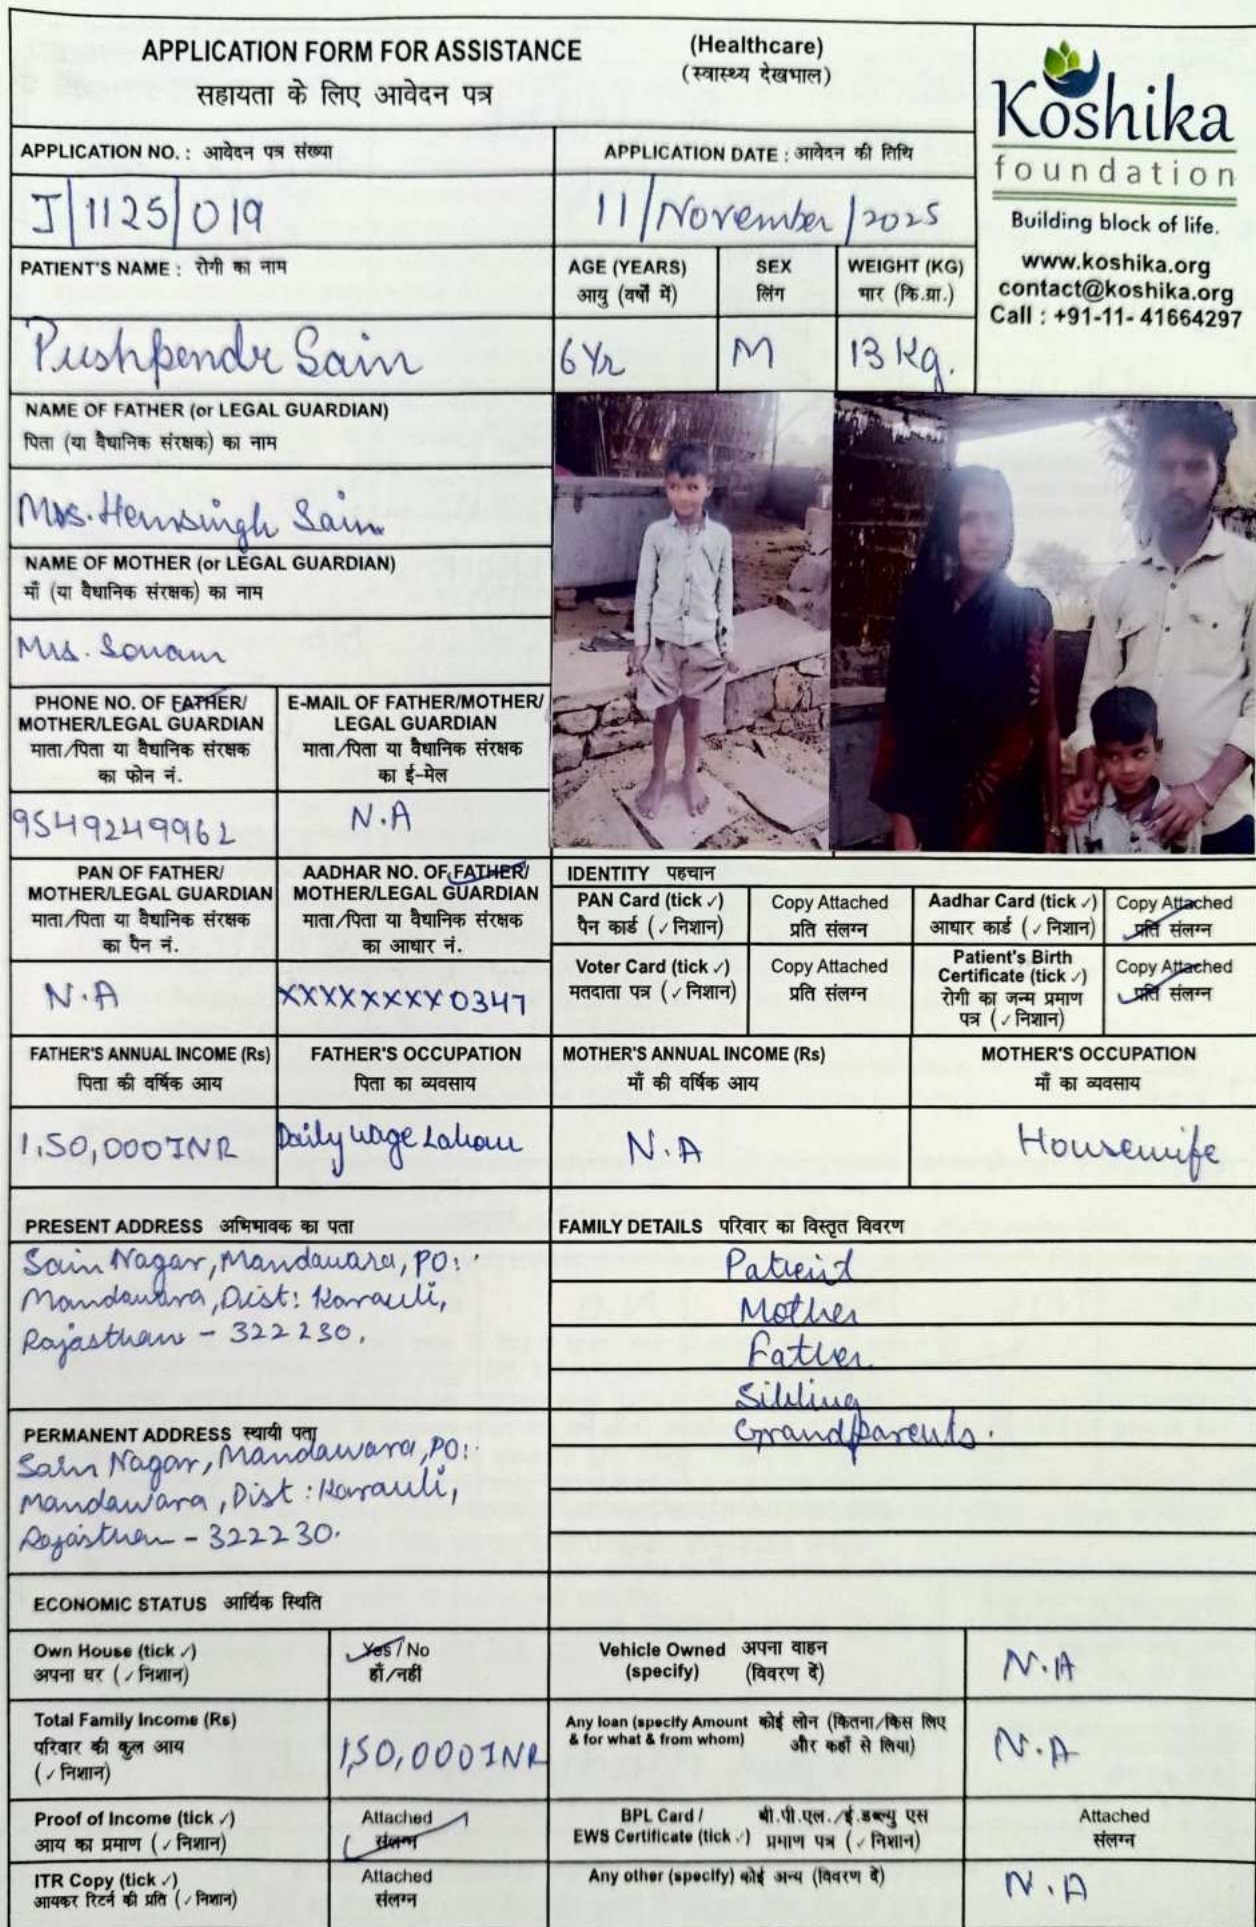 APPLICATION FORM FOR ASSISTANCE
(Healthcare)
सहायता के लिए आवेदन पत्र
(स्वास्थ्य देखभाल)
Koshika
foundation
Building block of life.
www.koshika.org
contact@koshika.org
Call : +91-11- 41664297
APPLICATION NO. : आवेदन पत्र संख्या
APPLICATION DATE : आवेदन की तिथि
J/1125/019
11/November/2025
PATIENT'S NAME : रोगी का नाम
AGE (YEARS)
आयु (वर्षों में)
SEX
लिंग
WEIGHT (KG)
भार (कि.ग्रा.)
Pushpendr Sain
6 Yr
M
13 Kg.
NAME OF FATHER (or LEGAL GUARDIAN)
पिता (या वैधानिक संरक्षक) का नाम
Hemsingh Sain
NAME OF MOTHER (or LEGAL GUARDIAN)
माँ (या वैधानिक संरक्षक) का नाम
Mrs. Sonam
PHONE NO. OF FATHER/
MOTHER/LEGAL GUARDIAN
माता/पिता या वैधानिक संरक्षक
का फोन नं.
E-MAIL OF FATHER/MOTHER/
LEGAL GUARDIAN
माता/पिता या वैधानिक संरक्षक
का ई-मेल
9549249962
N.A
PAN OF FATHER/
MOTHER/LEGAL GUARDIAN
माता/पिता या वैधानिक संरक्षक
का पैन नं.
AADHAR NO. OF FATHER/
MOTHER/LEGAL GUARDIAN
माता/पिता या वैधानिक संरक्षक
का आधार नं.
N.A
XXXXXXXX0347
IDENTITY पहचान
PAN Card (tick ✓)
पैन कार्ड (✓ निशान)
Copy Attached
प्रति संलग्न
Aadhar Card (tick ✓)
आधार कार्ड (✓ निशान)
Copy Attached
प्रति संलग्न
Voter Card (tick ✓)
मतदाता पत्र (✓ निशान)
Copy Attached
प्रति संलग्न
Patient's Birth
Certificate (tick ✓)
रोगी का जन्म प्रमाण
पत्र (✓ निशान)
Copy Attached
प्रति संलग्न
FATHER'S ANNUAL INCOME (Rs)
पिता की वर्षिक आय
FATHER'S OCCUPATION
पिता का व्यवसाय
MOTHER'S ANNUAL INCOME (Rs)
माँ की वर्षिक आय
MOTHER'S OCCUPATION
माँ का व्यवसाय
1,50,000 INR
Daily wage Labour
N.A
Housewife
PRESENT ADDRESS अभिभावक का पता
Sain Nagar, Mandawara, PO:
Mandawara, Dist: Karauli,
Rajasthan - 322230.
PERMANENT ADDRESS स्थायी पता
Sain Nagar, Mandawara, PO:
Mandawara, Dist: Karauli,
Rajasthan - 322230.
FAMILY DETAILS परिवार का विस्तृत विवरण
Patient
Mother
Father
Sibling
Grandparents.
ECONOMIC STATUS आर्थिक स्थिति
Own House (tick ✓)
अपना घर (✓ निशान)
Yes / No
हाँ/नहीं
Vehicle Owned अपना वाहन
(specify) (विवरण दें)
N.A
Total Family Income (Rs)
परिवार की कुल आय
(✓ निशान)
1,50,000 INR
Any loan (specify Amount कोई लोन (कितना/किस लिए
& for what & from whom) और कहाँ से लिया)
N.A
Proof of Income (tick ✓)
आय का प्रमाण (✓ निशान)
Attached
संलग्न
BPL Card / बी.पी.एल./ई.डब्ल्यु एस
EWS Certificate (tick ✓) प्रमाण पत्र (✓ निशान)
Attached
संलग्न
ITR Copy (tick ✓)
आयकर रिटर्न की प्रति (✓ निशान)
Attached
संलग्न
Any other (specify) कोई अन्य (विवरण दें)
N.A